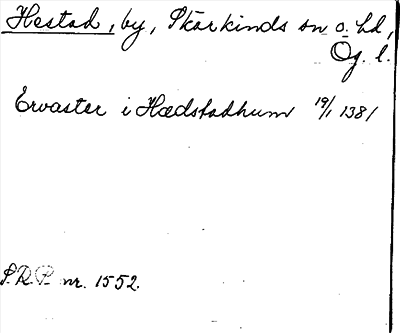 Hestad, by, Skärkinds sn o. hd,
Ög. l.
Ervaster i Hædstadhum 19/1 1381
S.R.P. nr. 1552.